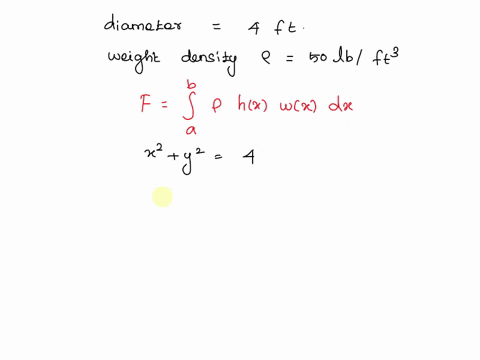 diameter = 4 ft.
weight density ρ = 50 lb/ft³
F = ∫ₐᵇ ρ h(x) w(x) dx
x² + y² = 4